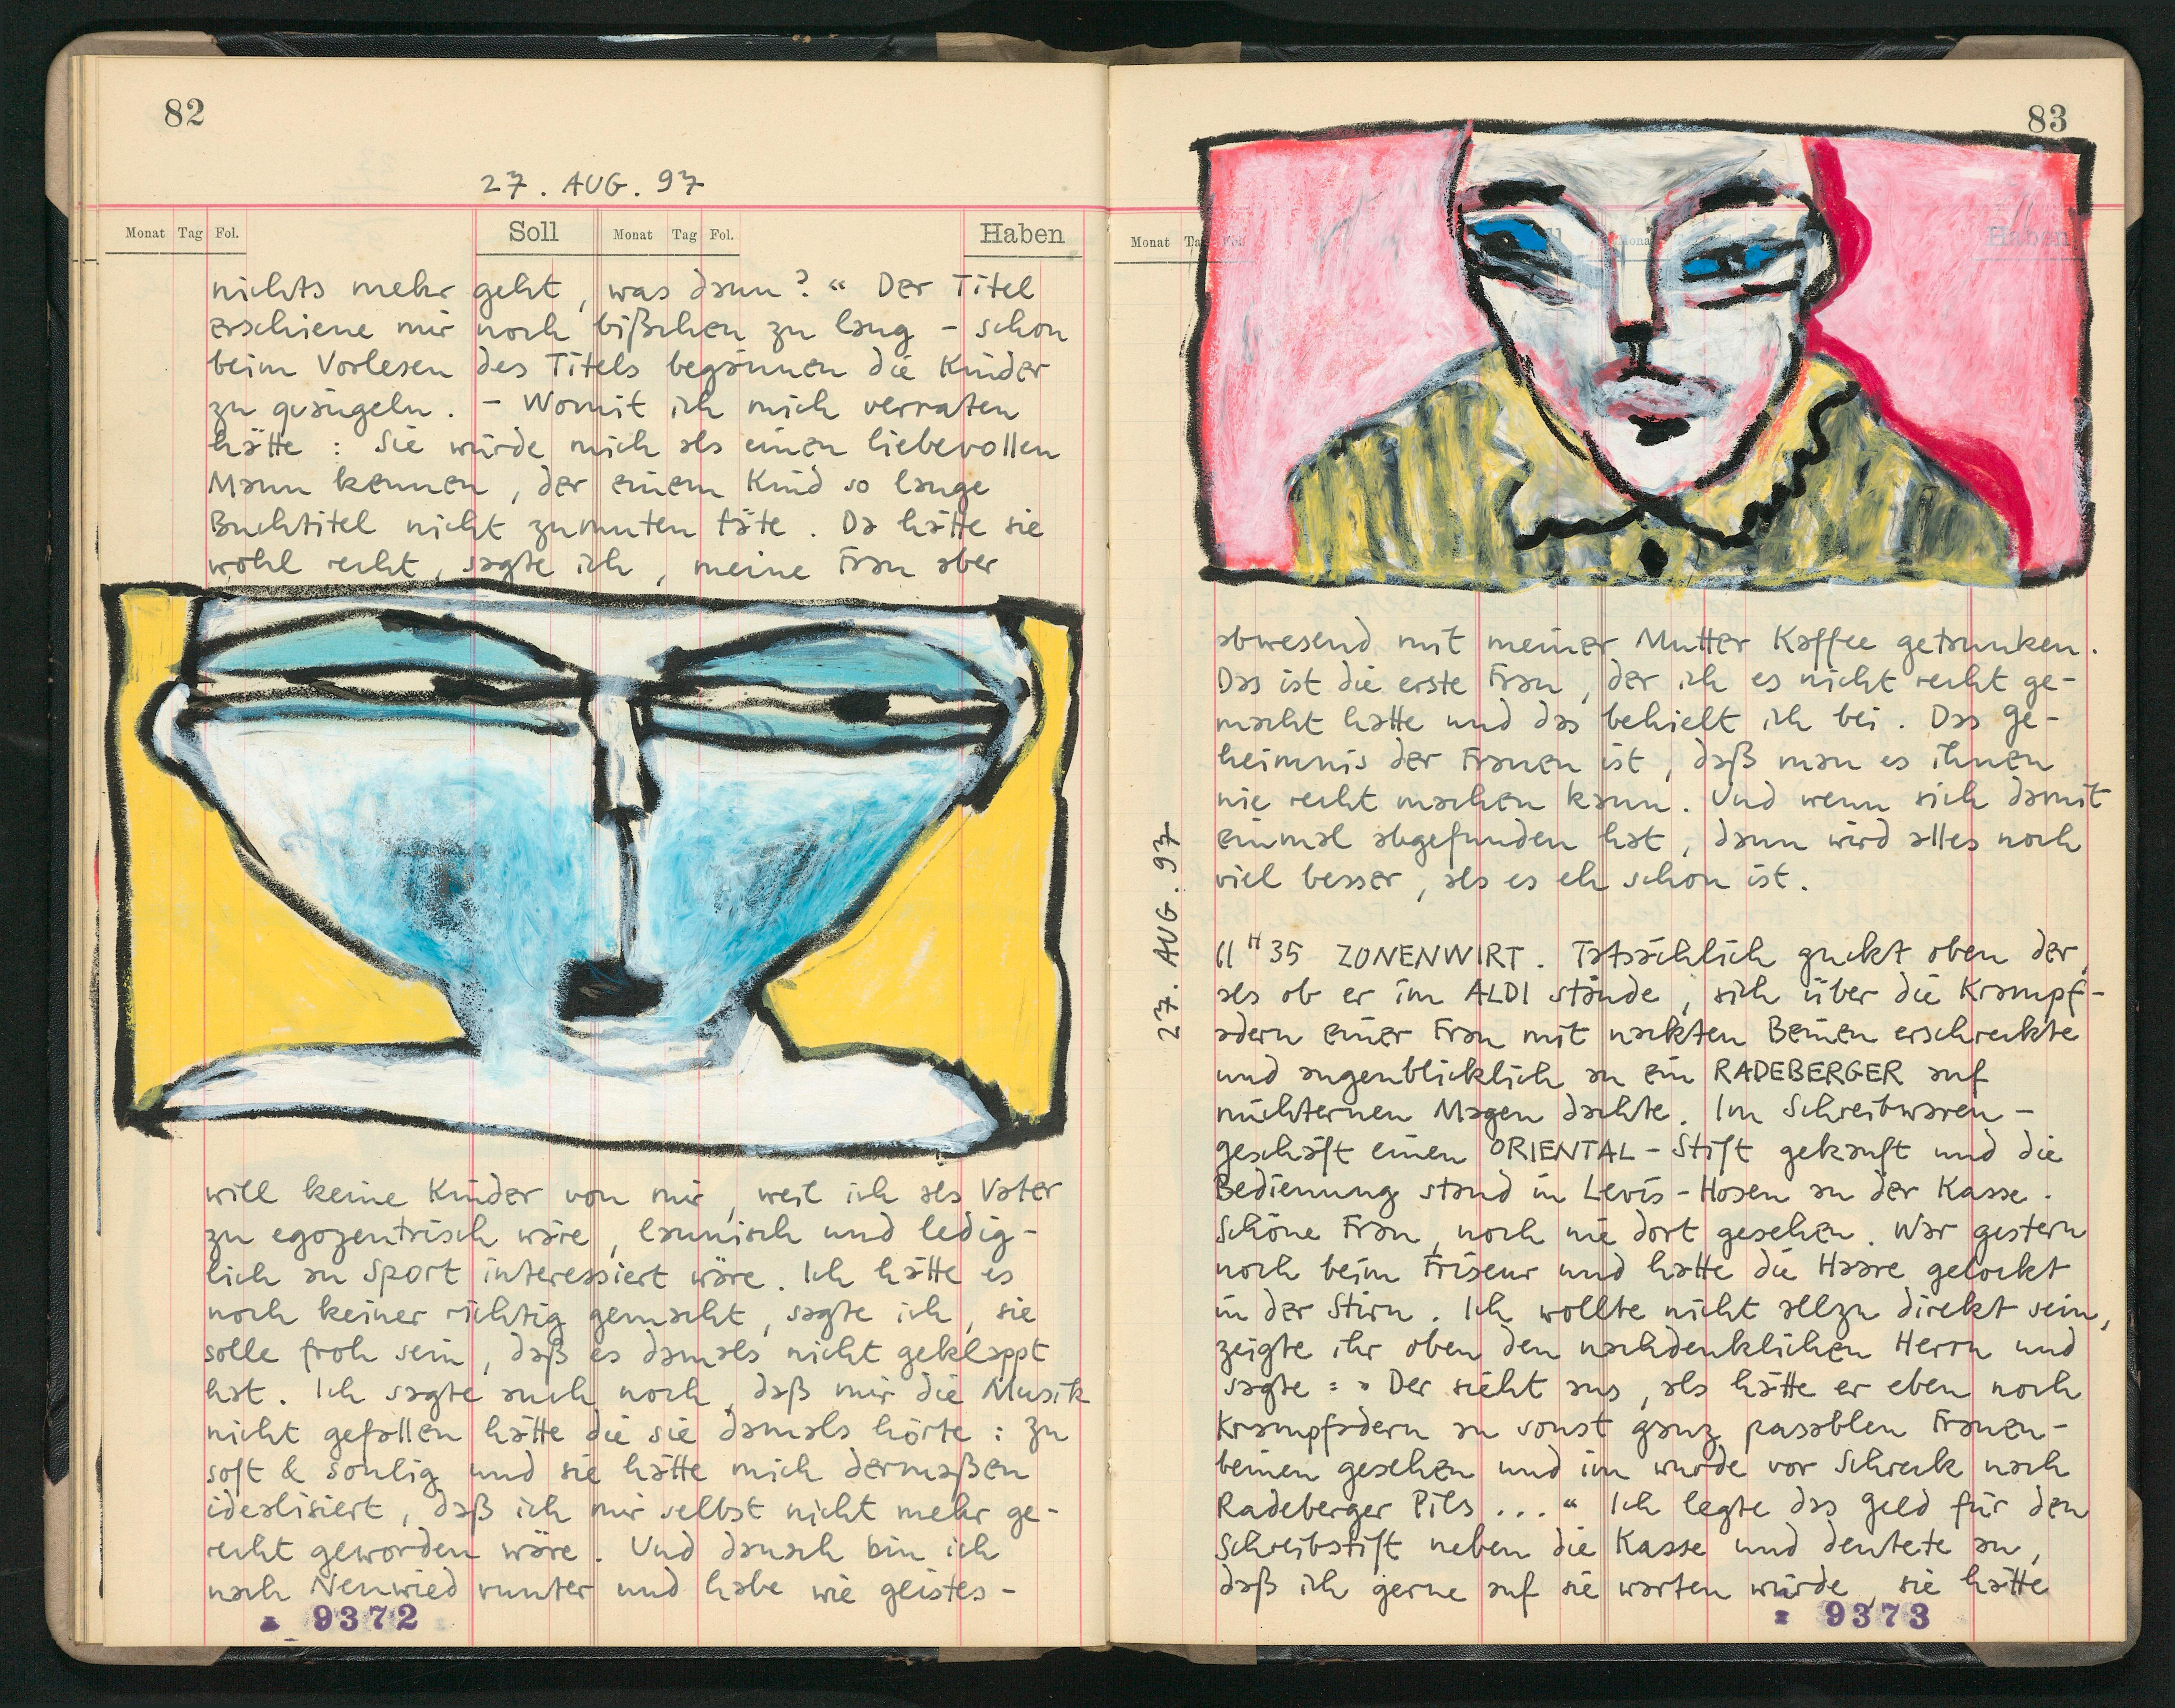 82
27. AUG. 97
Monat Tag Fol. Soll Monat Tag Fol. Haben
nichts mehr geht, was dann?“ Der Titel
erschiene mir noch bißchen zu lang – schon
beim Vorlesen des Titels begännen die Kinder
zu quängeln. – Womit ich mich verraten
hätte: Sie würde mich als einen liebevollen
Mann kennen, der einem Kind so lange
Buchtitel nicht zumuten täte. Da hätte sie
wohl recht, sagte ich, meine Frau aber
will keine Kinder von mir, weil ich als Vater
zu egozentrisch wäre, launisch und ledig-
lich an Sport interessiert wäre. Ich hätte es
noch keiner richtig gemacht, sagte ich, sie
solle froh sein, daß es damals nicht geklappt
hat. Ich sagte auch noch, daß mir die Musik
nicht gefallen hätte die sie damals hörte: zu
soft & soulig und sie hätte mich dermaßen
idealisiert, daß ich mir selbst nicht mehr ge-
recht geworden wäre. Und danach bin ich
nach Neuwied runter und habe wie geistes-
9372
83
Monat Ta Fol.
Haben
abwesend mit meiner Mutter Kaffee getrunken.
Das ist die erste Frau, der ich es nicht recht ge-
macht hatte und das behielt ich bei. Das Ge-
heimnis der Frauen ist, daß man es ihnen
nie recht machen kann. Und wenn sich damit
einmal abgefunden hat, dann wird alles noch
viel besser, als es eh schon ist.
27. AUG. 97
11 H 35 ZONENWIRT. Tatsächlich guckt oben der,
als ob er im ALDI stände, sich über die Krampf-
adern einer Frau mit nackten Beinen erschreckte
und augenblicklich an ein RADEBERGER auf
nüchternen Magen dachte. Im Schreibwaren-
geschäft einen ORIENTAL-Stift gekauft und die
Bedienung stand in Levis-Hosen an der Kasse.
Schöne Frau, noch nie dort gesehen. War gestern
noch beim Friseur und hatte die Haare gelockt
in der Stirn. Ich wollte nicht allzu direkt sein,
zeigte ihr oben den nachdenklichen Herrn und
sagte: »Der sieht aus, als hätte er eben noch
Krampfadern an sonst ganz passablen Frauen-
beinen gesehen und im wurde vor Schreck nach
Radeberger Pils ...“ Ich legte das Geld für den
Schreibstift neben die Kasse und deutete an,
daß ich gerne auf sie warten würde, sie hätte
9373